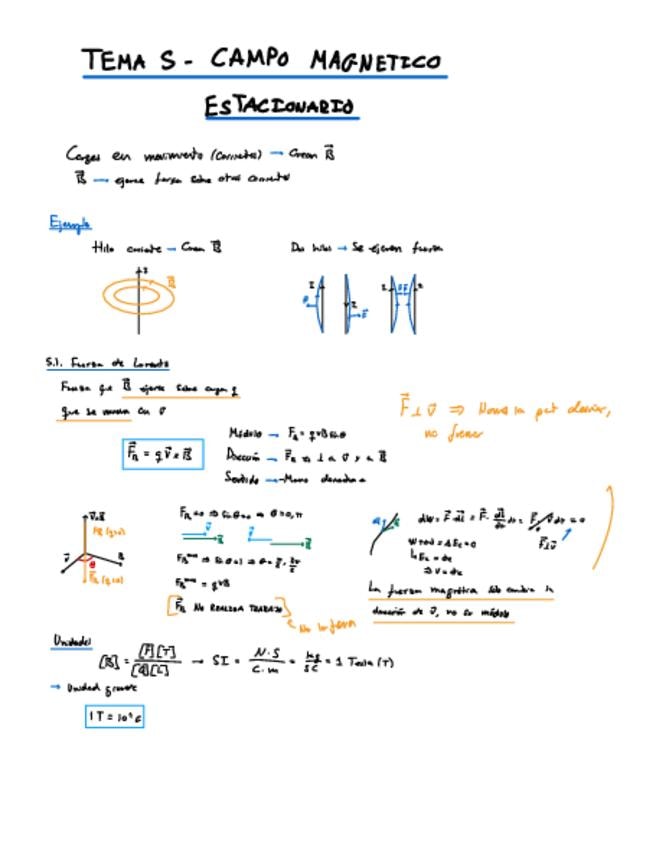 TEMA 5 - CAMPO MAGNETICO
ESTACIONARIO
Cargas en movimiento (corrientes) → Crean B⃗
B⃗ → ejerce fuerza sobre otras corrientes
Ejemplo
Hilo corriente → Crea B⃗
Dos hilos → Se ejercen fuerza
I
B⃗
I
I
F⃗
5.1. Fuerza de Lorentz
Fuerza que B⃗ ejerce sobre carga q
que se mueve con v⃗
F⃗ ⊥ v⃗ ⇒
no frenar
F⃗_B = q v⃗ × B⃗
Módulo → F_B = qvB sinθ
Dirección → F⃗_B ⊥ a v⃗ y a B⃗
Sentido → Mano derecha
v⃗×B⃗
F_B (q>0)
v⃗
B⃗
θ
F⃗_B (q<0)
F_B=0 ⇒ sinθ=0 ⇒ θ=0,π
v⃗
B⃗
B⃗
F_B^max ⇒ sinθ=1 ⇒ θ=
F_B^max = qvB
[F⃗_B NO REALIZA TRABAJO]
dW = F⃗·dl⃗ = F⃗· dl⃗/dt dt = F⃗·v⃗ dt = 0
F⃗⊥v⃗
W total = ΔEc = 0
Ec = cte
⇒ v = cte
La fuerza magnética sólo cambia la
dirección de v⃗, no su módulo
Unidades
[B] = [F][T] / [Q][L] → SI = N·S / C·m = kg / SC = 1 Tesla (T)
→ Unidad
1 T = 10⁴ G